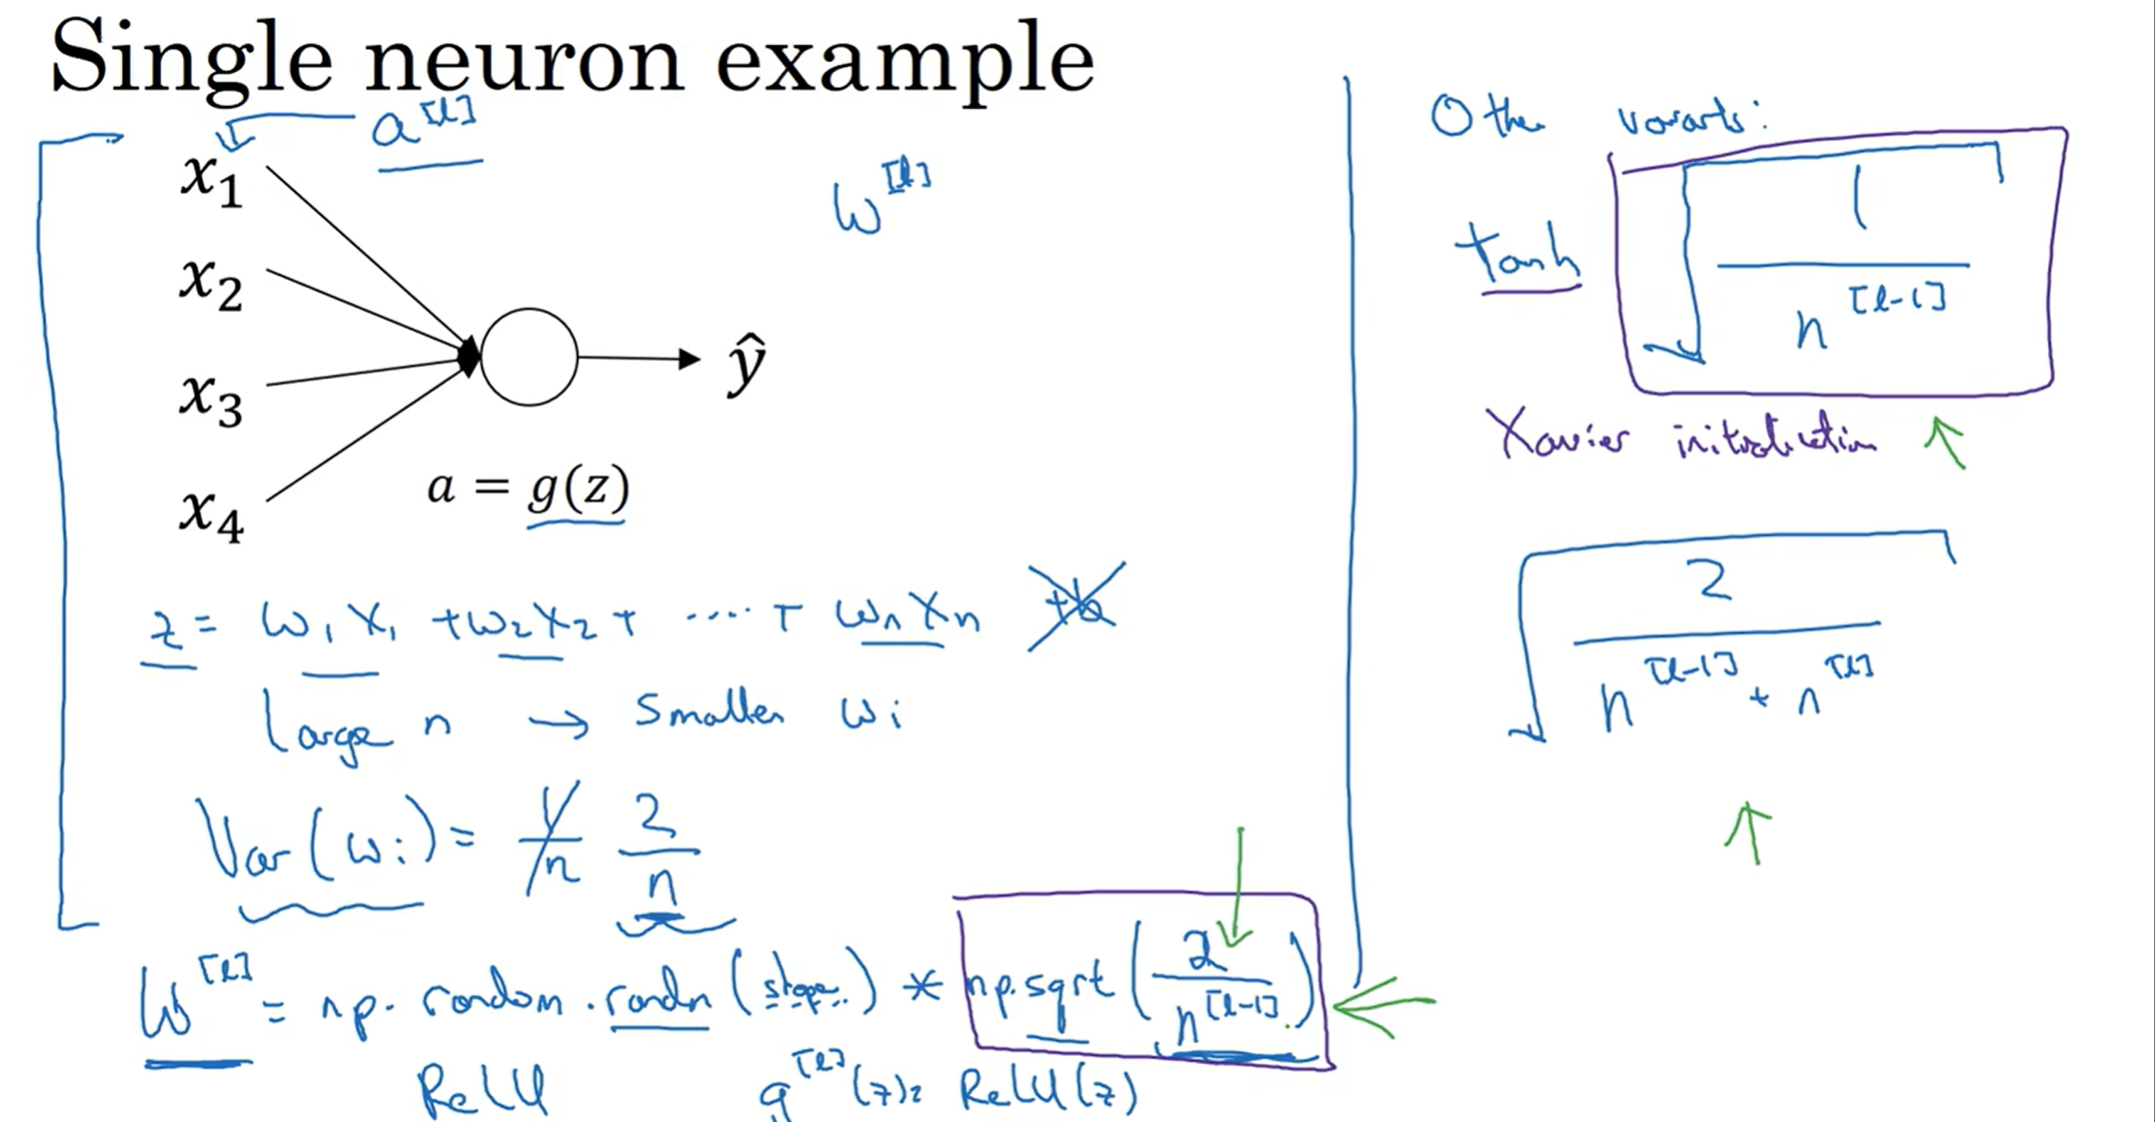 Single neuron example
a^[l]
x₁
x₂
x₃
x₄
ŷ
a = g(z)
W^[l]
z = w₁x₁ + w₂x₂ + ..... + wₙxₙ +b
Large n → Smaller wi
Var(wi) = 1/n 2/n
W^[l] = np.random.randn(shape) * np.sqrt(2/n^[l-1])
ReLU g^[l](z) = ReLU(z)
Other variants:
tanh √(1/n^[l-1])
Xavier initialization ↑
√(2/(n^[l-1] + n^[l]))
↑